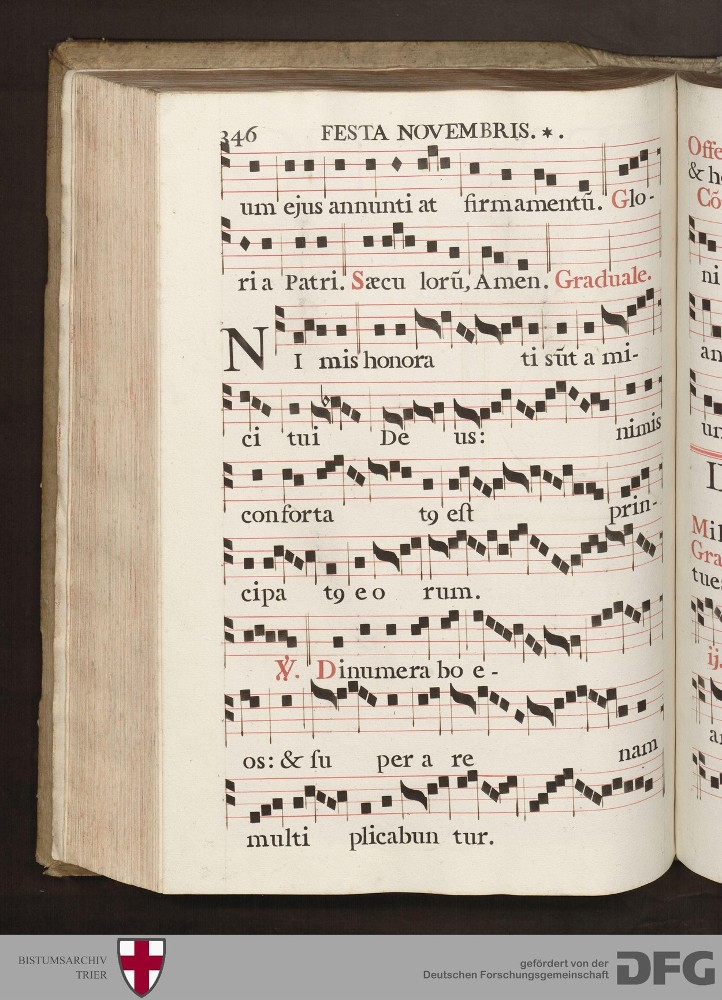 346 FESTA NOVEMBRIS. * .
um ejus annunti at firmamentũ. Glo-
ri a Patri. Sæcu lorũ, Amen. Graduale.
NI mis honora ti sũt a mi-
ci tui De us: nimis
conforta t9 est prin-
cipa t9 e o rum.
℣. Dinumera bo e-
os: & su per a re nam
multi plicabun tur.
Offe
& h
Cõ
ni
an
un
D
Mil
Gra
tue
ij.
a
BISTUMSARCHIV
TRIER
gefördert von der
Deutschen Forschungsgemeinschaft
DFG